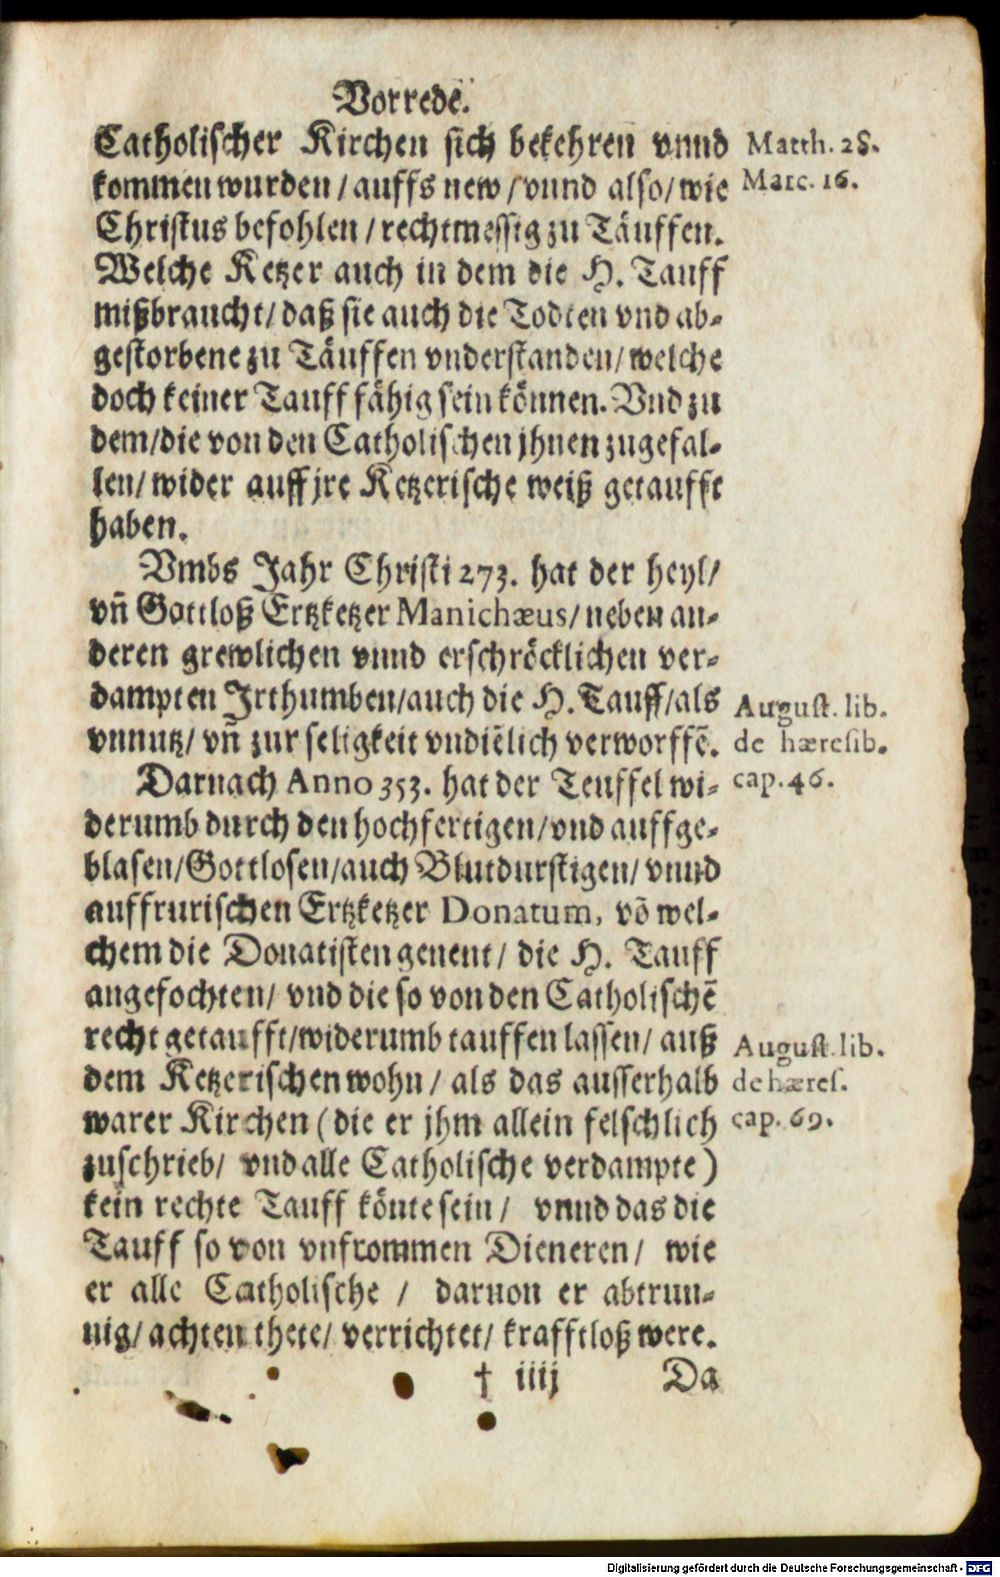 Vorrede.
Catholischer Kirchen sich bekehren vnnd
Matth. 28.
kommen wurden / auffs new / vnnd also / wie
Marc. 16.
Christus befohlen / rechtmessig zu Täuffen.
Welche Ketzer auch in dem die H. Tauff
mißbraucht / daß sie auch die Todten vnd ab-
gestorbene zu Täuffen vnderstanden / welche
doch keiner Tauff fähig sein können. Vnd zu
dem / die von den Catholischen jhnen zugefal-
len / wider auff jre Ketzerische weiß getaufft
haben.
Vmbs Jahr Christi 273. hat der heyl /
vñ Gottloß Ertzketzer Manichæus / neben an-
deren grewlichen vnnd erschröcklichen ver-
dampten Irthumben / auch die H. Tauff / als
August. lib.
vnnutz / vñ zur seligkeit vndiẽlich verworffẽ.
de hæresib.
Darnach Anno 353. hat der Teuffel wi-
cap. 46.
derumb durch den hochfertigen / vnd auffge-
blasen / Gottlosen / auch Blutdurstigen / vnnd
auffrurischen Ertzketzer Donatum, võ wel-
chem die Donatisten genent / die H. Tauff
angefochten / vnd die so von den Catholischẽ
recht getaufft / widerumb tauffen lassen / auß
August. lib.
dem Ketzerischen wohn / als das ausserhalb
de hæres.
warer Kirchen ( die er jhm allein felschlich
cap. 69.
zuschrieb / vnd alle Catholische verdampte )
kein rechte Tauff könte sein / vnnd das die
Tauff so von vnfrommen Dieneren / wie
er alle Catholische / daruon er abtrun-
nig / achten thete / verrichtet / krafftloß were.
† iiij Da
Digitalisierung gefördert durch die Deutsche Forschungsgemeinschaft - DFG